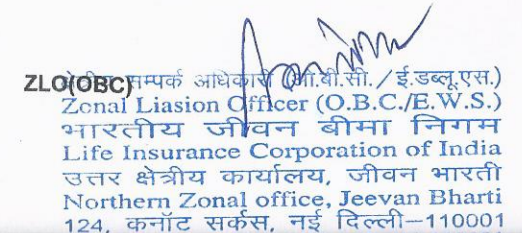 ZLO(OBC)
क्षेत्रीय सम्पर्क अधिकारी (ओ.बी.सी./ई.डब्लू.एस.)
Zonal Liasion Officer (O.B.C./E.W.S.)
भारतीय जीवन बीमा निगम
Life Insurance Corporation of India
उत्तर क्षेत्रीय कार्यालय, जीवन भारती
Northern Zonal office, Jeevan Bharti
124, कनॉट सर्कस, नई दिल्ली–110001